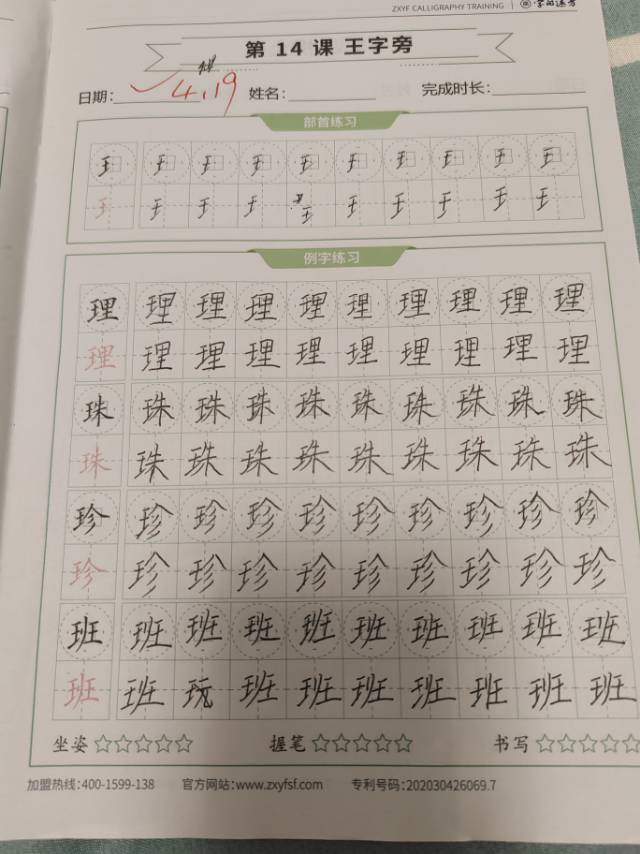 ZXYF CALLIGRAPHY TRAINING
第 14 课 王字旁
日期: 4.19 姓名: 完成时长:
部首练习
王 王 王 王 王 王 王 王 王 王
王 王 王 王 王 王 王 王 王 王
例字练习
理 理 理 理 理 理 理 理 理 理
理 理 理 理 理 理 理 理 理 理
珠 珠 珠 珠 珠 珠 珠 珠 珠 珠
珠 珠 珠 珠 珠 珠 珠 珠 珠 珠
珍 珍 珍 珍 珍 珍 珍 珍 珍 珍
珍 珍 珍 珍 珍 珍 珍 珍 珍 珍
班 班 班 班 班 班 班 班 班 班
班 班 玩 班 班 班 班 班 班 班
坐姿 握笔 书写
加盟热线:400-1599-138 官方网站:www.zxyfsf.com 专利号码:202030426069.7